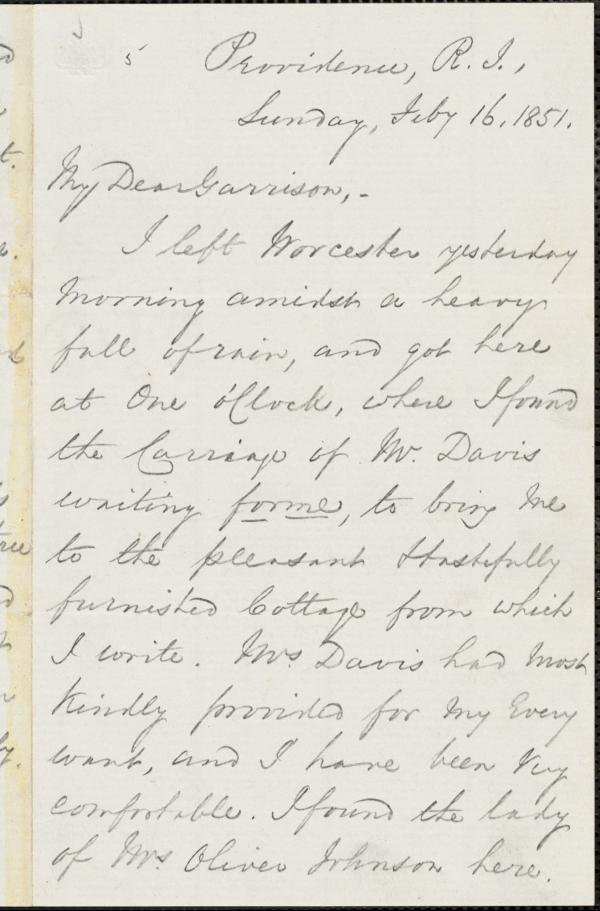 5
Providence, R. I.,
Sunday, Feby 16, 1851.
My Dear Garrison, -
I left Worcester yesterday
Morning amidst a heavy
fall of rain, and got here
at One o'Clock, where I found
the Carriage of Mr. Davis
waiting for me, to bring Me
to the pleasant & tastefully
furnished Cottage from which
I write. Mrs. Davis had Most
Kindly provided for My Every
want, and I have been very
comfortable. I found the lady
of Mr. Oliver Johnson here.